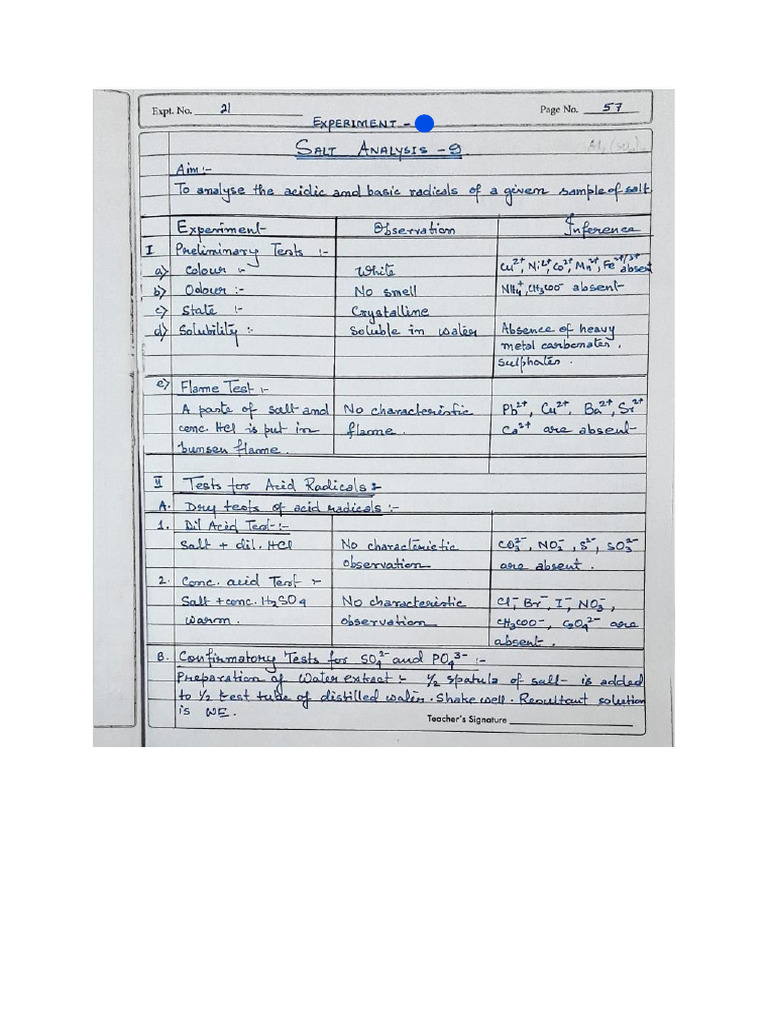 Expt. No. 21 Page No. 57
EXPERIMENT -
SALT ANALYSIS - 9
Aim :-
To analyse the acidic and basic radicals of a given sample of salt.
Experiment Observation Inference
I Preliminary Tests :-
a) Colour :- White Cu²⁺, Ni²⁺, Co²⁺, Mn²⁺, Fe²⁺/³⁺ absent
b) Odour :- No smell NH₄⁺, CH₃COO⁻ absent
c) State :- Crystalline
d) Solubility :- Soluble in water Absence of heavy
metal carbonates,
sulphates.
e) Flame Test :-
A paste of salt and No characteristic Pb²⁺, Cu²⁺, Ba²⁺, Sr²⁺
conc. HCl is put in flame. Ca²⁺ are absent
bunsen flame.
II Tests for Acid Radicals :-
A. Dry tests of acid radicals :-
1. Dil Acid Test :-
Salt + dil. HCl No characteristic CO₃²⁻, NO₂⁻, S²⁻, SO₃²⁻
observation are absent.
2. Conc. acid Test :-
Salt + conc. H₂SO₄ No characteristic Cl⁻, Br⁻, I⁻, NO₃⁻,
warm. observation CH₃COO⁻, C₂O₄²⁻ are
absent.
B. Confirmatory Tests for SO₄²⁻ and PO₄³⁻ :-
Preparation of Water extract :- 1/2 spatula of salt is added
to 1/2 test tube of distilled water. Shake well. Resultant solution
is WE.
Teacher's Signature